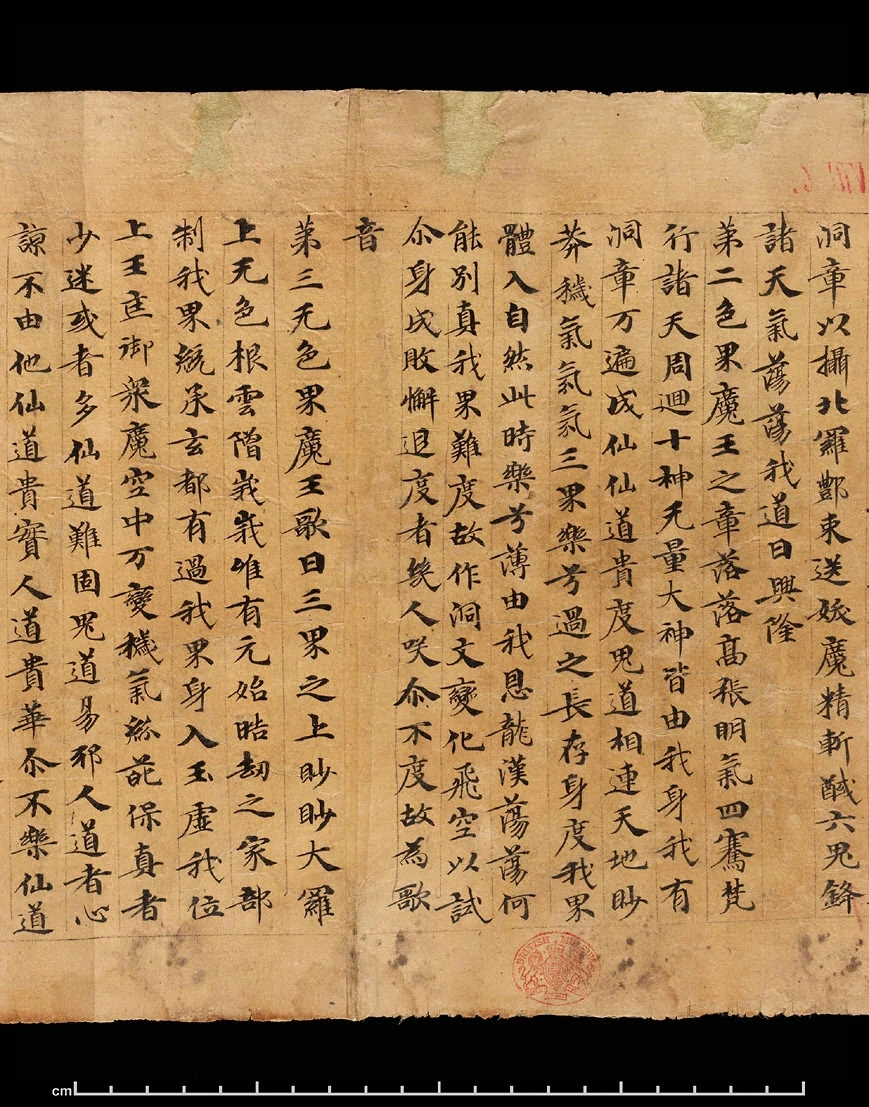 洞章以攝北羅酆束送妖魔精斬馘六鬼鋒
諸天氣蕩蕩我道日興隆
第二色界魔王之章落落高張明氣四騫梵
行諸天周迴十神无量大神皆由我身我有
洞章万遍成仙仙道貴度鬼道相連天地眇
莽穢氣氛氛三界樂兮過之長存身度我界
體入自然此時樂兮薄由我恩龍漢蕩蕩何
能別真我界難度故作洞文變化飛空以試
尒身成敗懈退度者幾人咲尒不度故為歌
音
第三无色界魔王歌曰三界之上眇眇大羅
上无色根雲層峩峩唯有元始晧劫之家部
制我界統承玄都有過我界身入玉虛我位
上王匡御衆魔空中万變穢氣紛葩保真者
少迷或者多仙道難固鬼道易邪人道者心
諒不由他仙道貴實人道貴華尒不樂仙道
BRITISH MUSEUM
VIII. 6.
cm